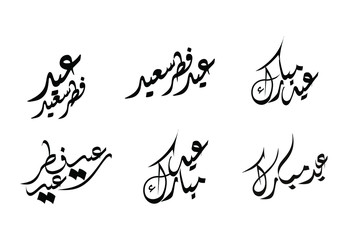 عيد مبارك
عيد فطر سعيد
عيد فطر سعيد
عيد مبارك
عيد مبارك
عيد فطر سعيد